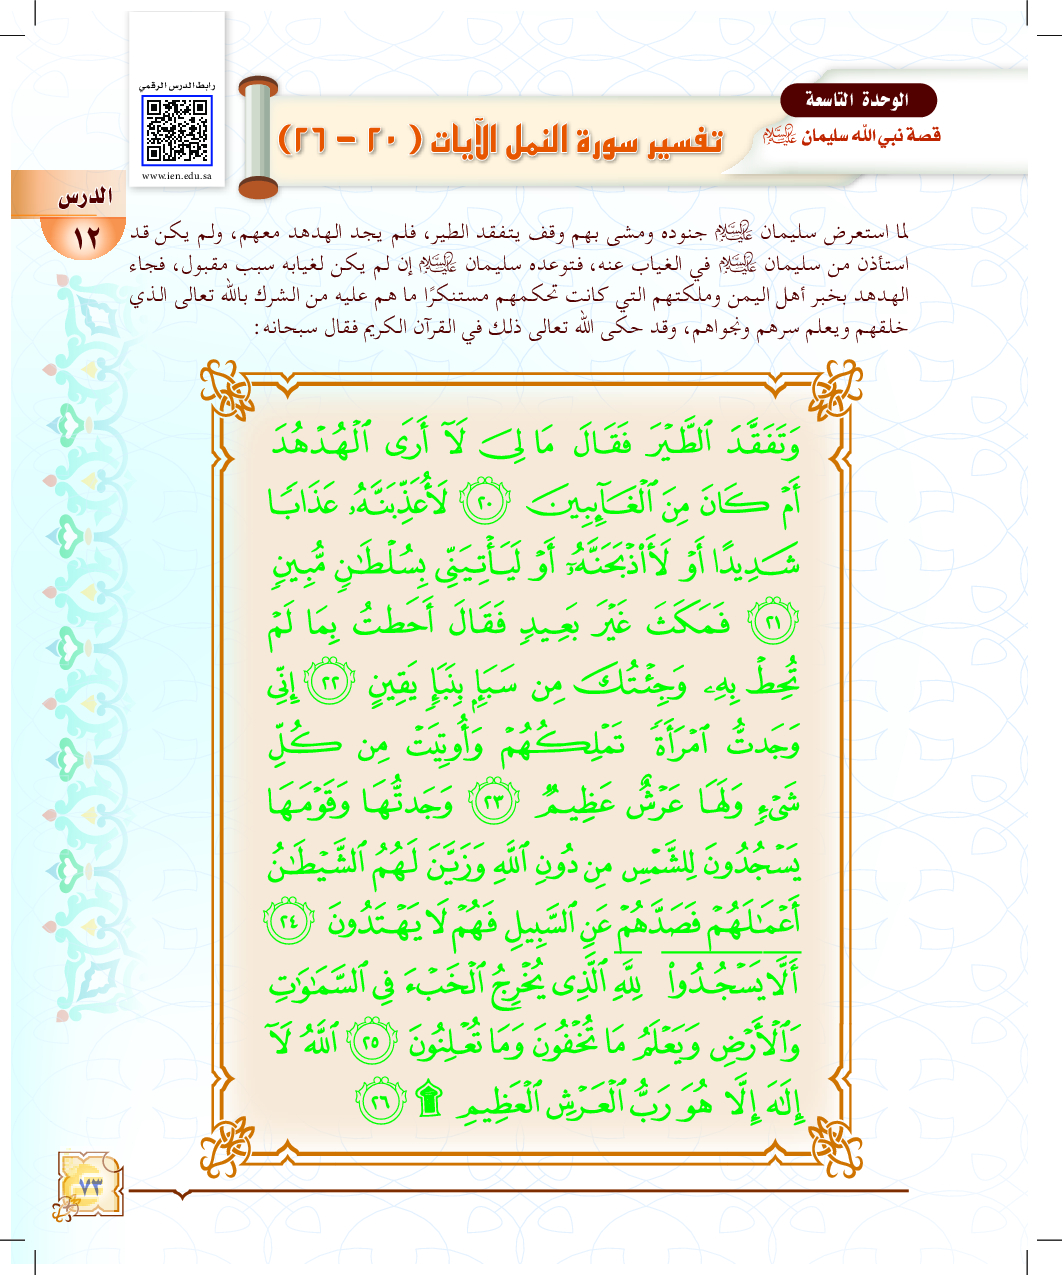 الوحدة التاسعة
قصة نبي الله سليمان عليه السلام
تفسير سورة النمل الآيات ( ٢٠ - ٢٦)
رابط الدرس الرقمي
www.ien.edu.sa
الدرس
١٢
لما استعرض سليمان عليه السلام جنوده ومشى بهم وقف يتفقد الطير، فلم يجد الهدهد معهم، ولم يكن قد
استأذن من سليمان عليه السلام في الغياب عنه، فتوعده سليمان عليه السلام إن لم يكن لغيابه سبب مقبول، فجاء
الهدهد بخبر أهل اليمن وملكتهم التي كانت تحكمهم مستنكرًا ما هم عليه من الشرك بالله تعالى الذي
خلقهم ويعلم سرهم ونجواهم، وقد حكى الله تعالى ذلك في القرآن الكريم فقال سبحانه:
وَتَفَقَّدَ ٱلطَّيْرَ فَقَالَ مَا لِىَ لَآ أَرَى ٱلْهُدْهُدَ
أَمْ كَانَ مِنَ ٱلْغَآئِبِينَ ٢٠ لَأُعَذِّبَنَّهُۥ عَذَابًا
شَدِيدًا أَوْ لَأَا۟ذْبَحَنَّهُۥٓ أَوْ لَيَأْتِيَنِّى بِسُلْطَٰنٍ مُّبِينٍ
٢١ فَمَكَثَ غَيْرَ بَعِيدٍ فَقَالَ أَحَطتُ بِمَا لَمْ
تُحِطْ بِهِۦ وَجِئْتُكَ مِن سَبَإٍۭ بِنَبَإٍ يَقِينٍ ٢٢ إِنِّى
وَجَدتُّ ٱمْرَأَةً تَمْلِكُهُمْ وَأُوتِيَتْ مِن كُلِّ
شَىْءٍ وَلَهَا عَرْشٌ عَظِيمٌ ٢٣ وَجَدتُّهَا وَقَوْمَهَا
يَسْجُدُونَ لِلشَّمْسِ مِن دُونِ ٱللَّهِ وَزَيَّنَ لَهُمُ ٱلشَّيْطَٰنُ
أَعْمَٰلَهُمْ فَصَدَّهُمْ عَنِ ٱلسَّبِيلِ فَهُمْ لَا يَهْتَدُونَ ٢٤
أَلَّا يَسْجُدُوا۟ لِلَّهِ ٱلَّذِى يُخْرِجُ ٱلْخَبْءَ فِى ٱلسَّمَٰوَٰتِ
وَٱلْأَرْضِ وَيَعْلَمُ مَا تُخْفُونَ وَمَا تُعْلِنُونَ ٢٥ ٱللَّهُ لَآ
إِلَٰهَ إِلَّا هُوَ رَبُّ ٱلْعَرْشِ ٱلْعَظِيمِ ۩ ٢٦
٧٣